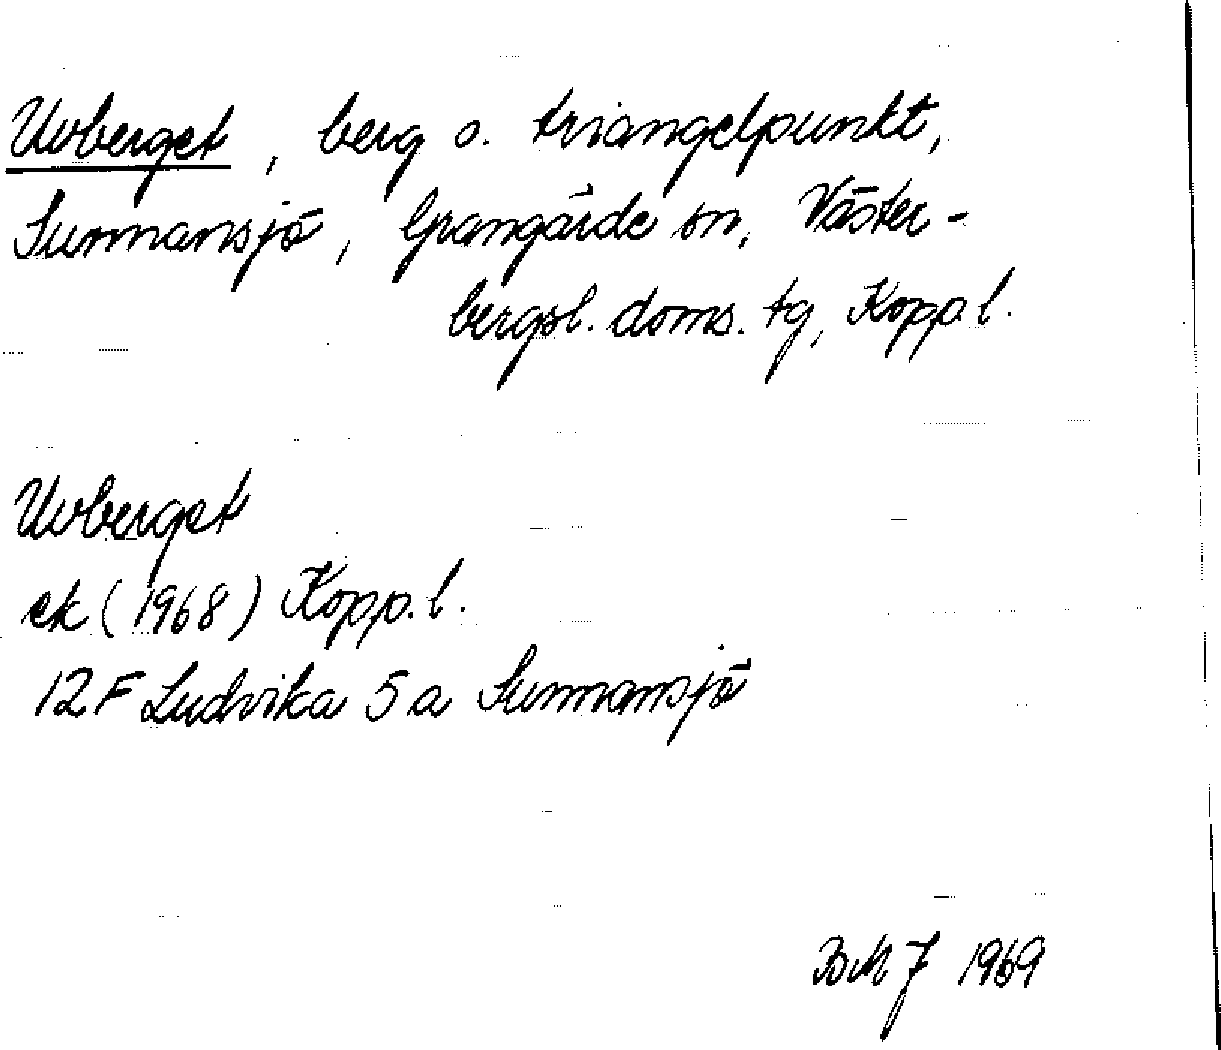 Uvberget, berg o. triangelpunkt,
Sunnansjö, Grangärde sn, Väster-
bergsl. doms. tg, Kopp. l.
Uvberget
ek (1968) Kopp. l.
12F Ludvika 5a Sunnansjö
BMJ 1969